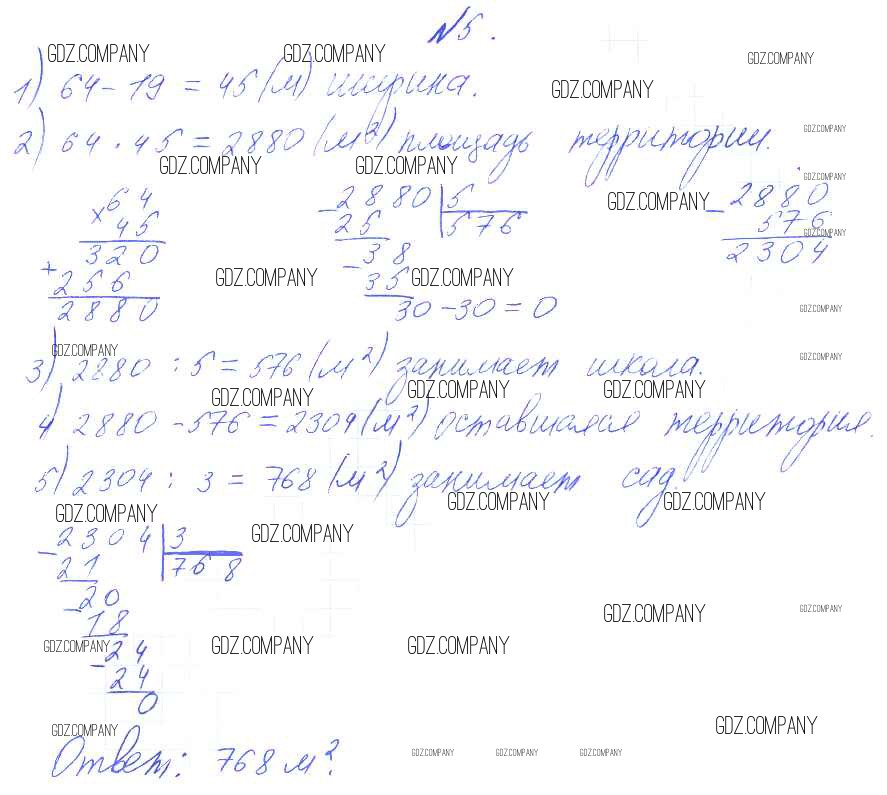 N5.
GDZ.COMPANY GDZ.COMPANY GDZ.COMPANY
1) 64 - 19 = 45 (м) ширина.
GDZ.COMPANY
2) 64 · 45 = 2880 (м²) площадь территории.
GDZ.COMPANY
GDZ.COMPANY GDZ.COMPANY
GDZ.COMPANY
× 64
45
320
+ 256
2880
- 2880 | 5
25 | 576
- 38
35
30 - 30 = 0
GDZ.COMPANY
- 2880
576
2304
GDZ.COMPANY
GDZ.COMPANY GDZ.COMPANY
GDZ.COMPANY
GDZ.COMPANY
3) 2880 : 5 = 576 (м²) занимает школа.
GDZ.COMPANY
GDZ.COMPANY GDZ.COMPANY GDZ.COMPANY
4) 2880 - 576 = 2304 (м²) оставшаяся территория.
5) 2304 : 3 = 768 (м²) занимает сад.
GDZ.COMPANY GDZ.COMPANY
GDZ.COMPANY GDZ.COMPANY
- 2304 | 3
21 | 768
- 20
18
- 24
24
0
GDZ.COMPANY GDZ.COMPANY
GDZ.COMPANY GDZ.COMPANY GDZ.COMPANY
GDZ.COMPANY GDZ.COMPANY
Ответ: 768 м².
GDZ.COMPANY GDZ.COMPANY GDZ.COMPANY